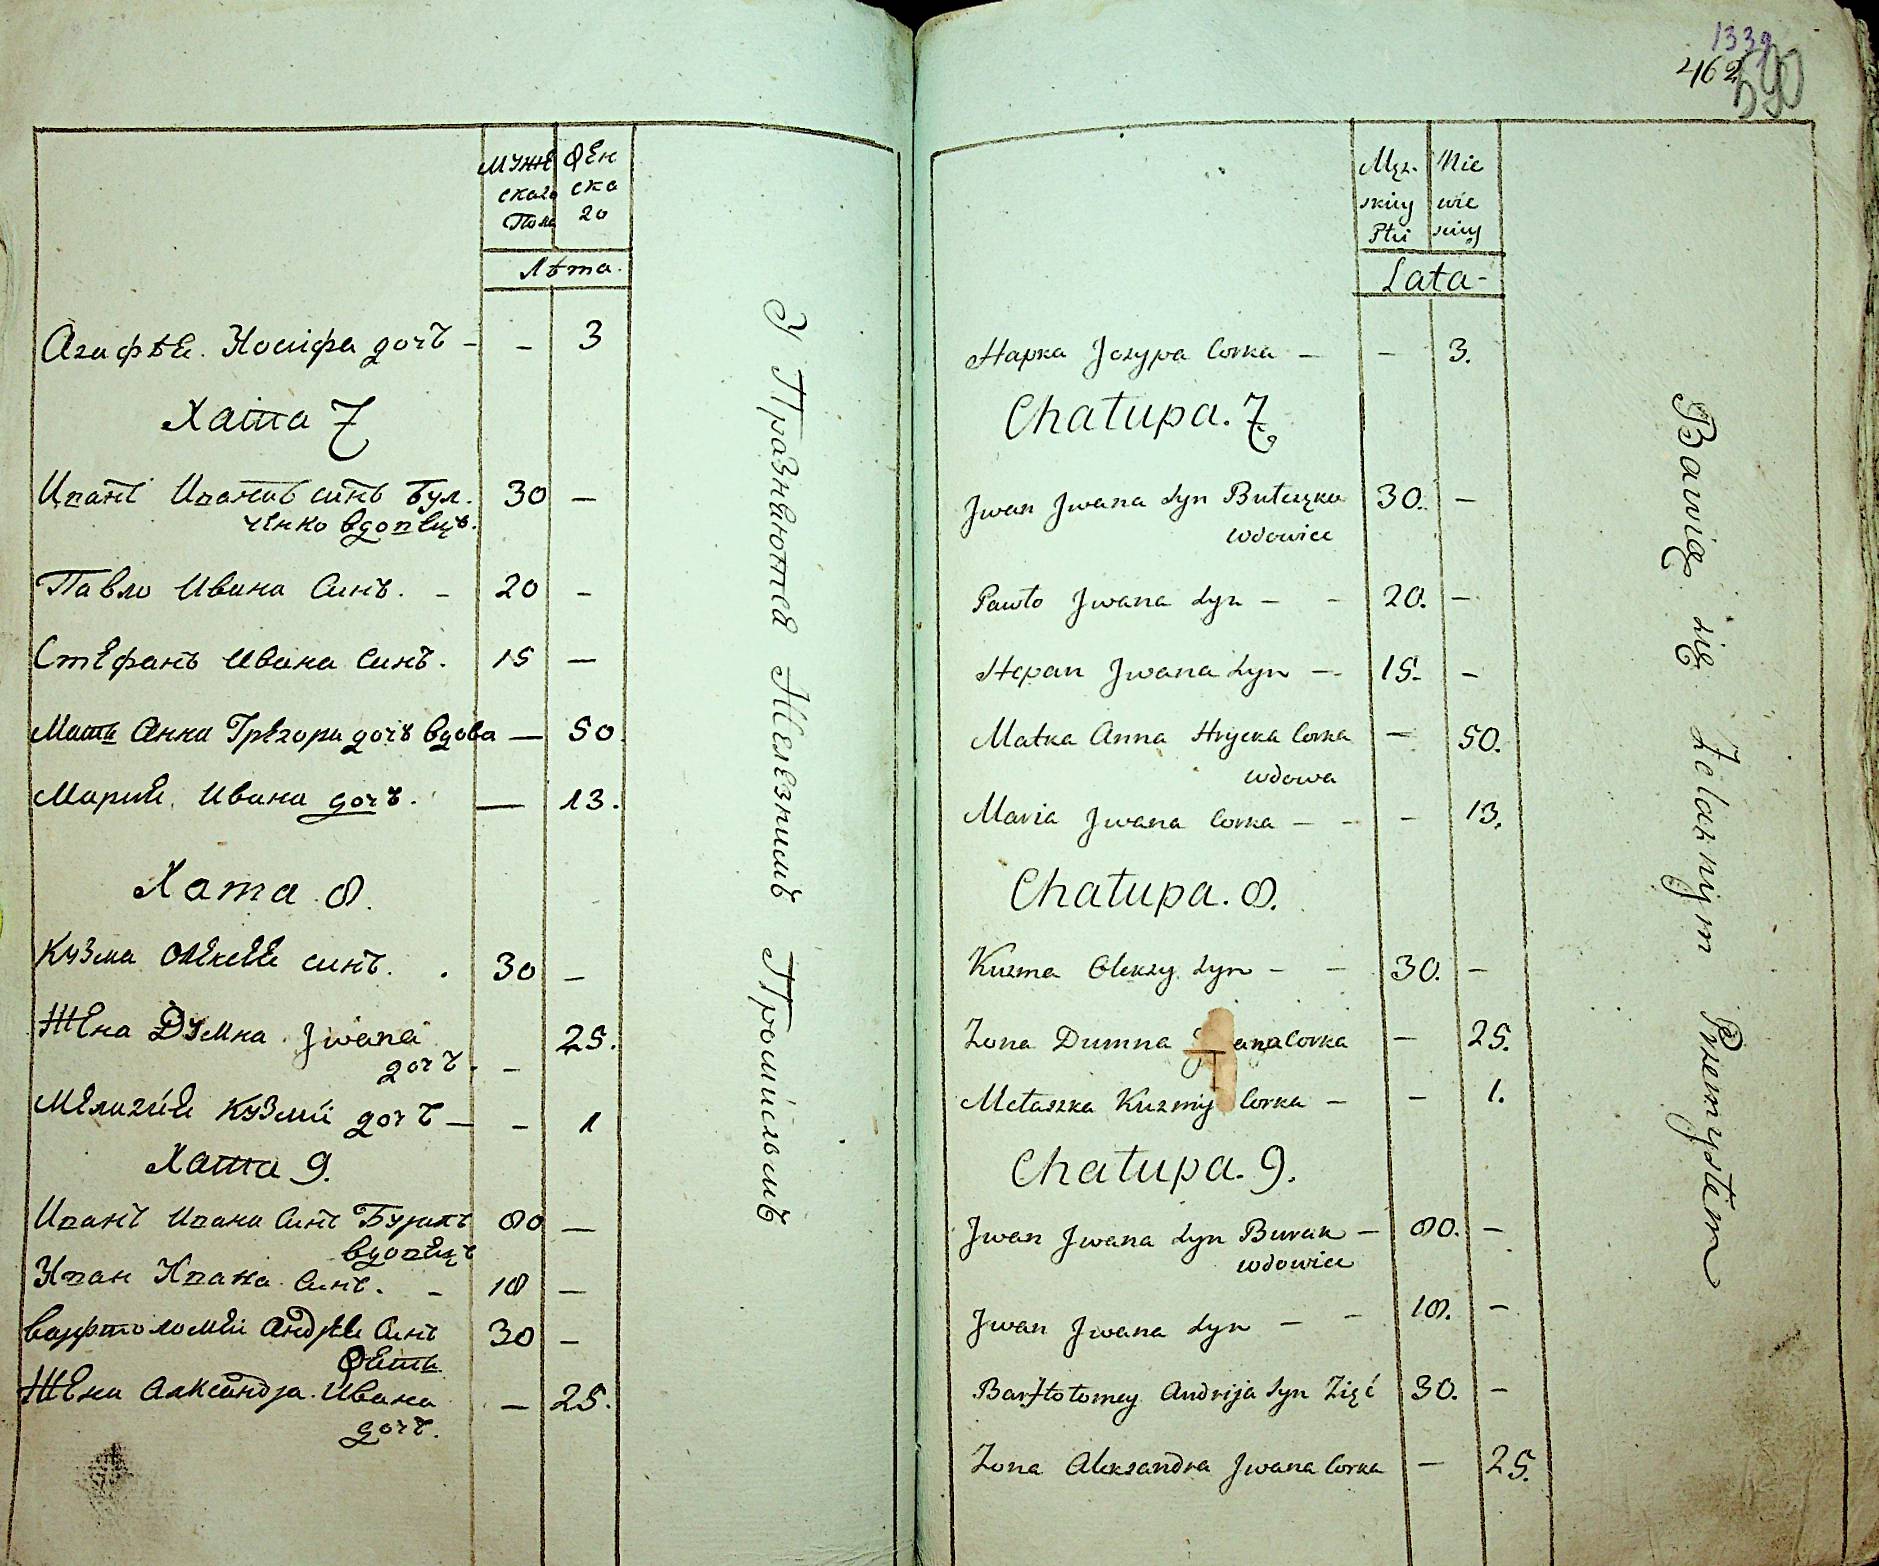 мужескаго Пола
женскаго
Лѣта.
Агафѣя. Иосифа дочъ - - 3
Хата 7
Иванъ Иванивъ синъ Бул. 30 —
ченко вдовецъ.
Павло Ивана Синъ. - 20 -
Стефанъ Ивана Синъ. 15 —
Мати Анна Грегори дочъ вдова — 50.
Мария Ивана дочъ. — 13.
Хата 8.
Кузма Олексея синъ. 30 —
Жена Думна Jwana 25.
дочъ. -
Мелания Кузмы дочъ — - 1
Хата 9.
Иванъ Ивана Синъ Буракъ 80 —
вдовецъ
Иван Ивана Синъ. - 18 —
Варфтоломей Андрея Синъ 30 —
Зять
Жена Александра Ивана — 25.
дочъ.
У Празнюются Железнимъ Промисльомъ
1339
462
590
Męzskiey Płci
Niewieskiey
Lata -
Hapka Jozypa Corka — — 3.
Chatupa. 7
Jwan Jwana Syn Butczęko 30. —
wdowiec
Pawło Jwana Syn — - 20. —
Stepan Jwana Syn — 15. —
Matka Anna Hrycka Corka — 50.
wdowa
Maria Jwana Corka — - - 13.
Chatupa. 8.
Kuzma Olexy Syn - - 30. —
Zona Dumna Jwana Corka — 25.
Mełaszka Kuzmy Corka — - 1.
Chatupa. 9.
Jwan Jwana Syn Burak — 80. —
wdowiec
Jwan Jwana Syn — - 18. —
Barfłołomey Andrija Syn Zięć 30. —
Zona Alexandra Jwana Corka — 25.
Bawią się Zelaznym Przemysłem